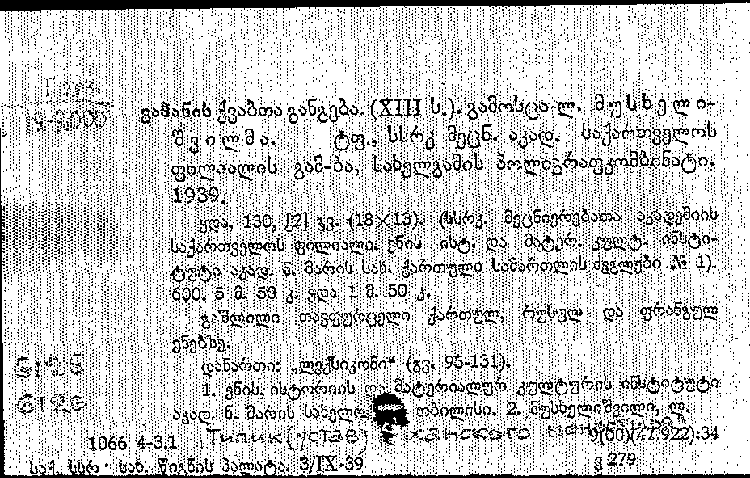 ვაჰანის ქვაბთა განგება. (XIII ს.). გამოსცა ლ. მუსხელი-
შვილმა. ტფ., სსრკ მეცნ. აკად. საქართველოს
ფილიალის გამ-ბა, სახელგამის პოლიგრაფკომბინატი.
1939.
ყდა, 130, [2] გვ. (18×13). (სსრკ. მეცნიერებათა აკადემიის
საქართველოს ფილიალი. ენის ისტ. და მატერ. კულტ. ინსტი-
ტუტი აკად. ნ. მარის სახ. ქართული სამართლის ძეგლები № 1).
600. 5 მ. 50 კ. ყდა 1 მ. 50 კ.
გაშლილი თავფურცელი ქართულ, რუსულ და ფრანგულ
ენებზე.
დანართი: „ლექსიკონი“ (გვ. 95-131).
1. ენის. ისტორიის და მატერიალურ კულტურის ინსტიტუტი
აკად. ნ. მარის სახელ. თბილისი. 2. მუსხელიშვილი, ლ.
1066 4-3.1 Типик (устав) Ваханского 9(60)(47.922):34
საქ. სსრ სახ. წიგნის პალატა. 3/IX-39 ვ 279